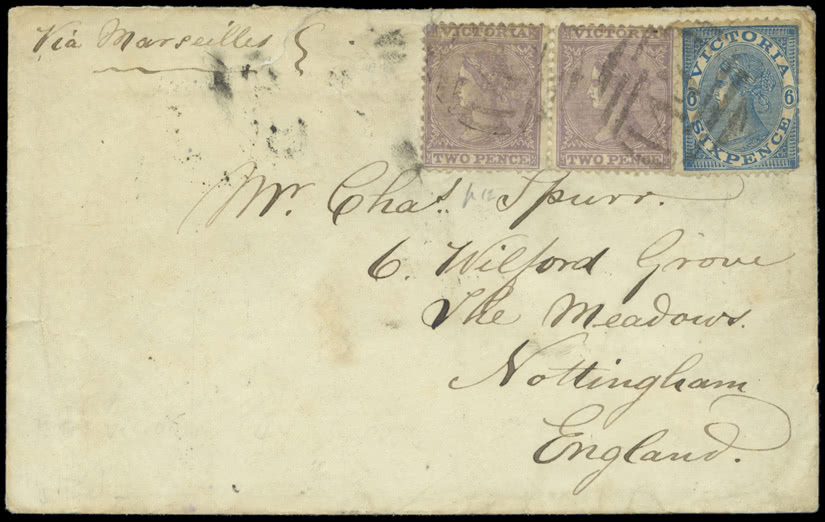 Via Marseilles
VICTORIA
TWO PENCE
VICTORIA
TWO PENCE
VICTORIA
6 6
SIXPENCE
Mr. Chas. Spurr.
6. Wilford Grove
The Meadows.
Nottingham
England.